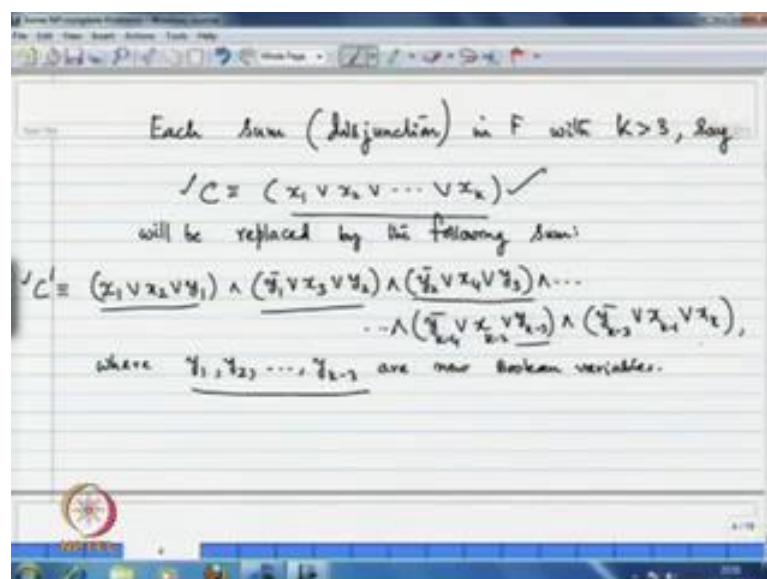 Each sum (disjunction) in F with k > 3, say
C ≡ (x₁ ∨ x₂ ∨ ··· ∨ xₖ) ✓
will be replaced by the following sum:
C' ≡ (x₁ ∨ x₂ ∨ y₁) ∧ (ȳ₁ ∨ x₃ ∨ y₂) ∧ (ȳ₂ ∨ x₄ ∨ y₃) ∧ ···
·· ∧ (ȳₖ₋₄ ∨ xₖ₋₂ ∨ yₖ₋₃) ∧ (ȳₖ₋₃ ∨ xₖ₋₁ ∨ xₖ),
where y₁, y₂, ···, yₖ₋₃ are new Boolean variables.
NPTEL